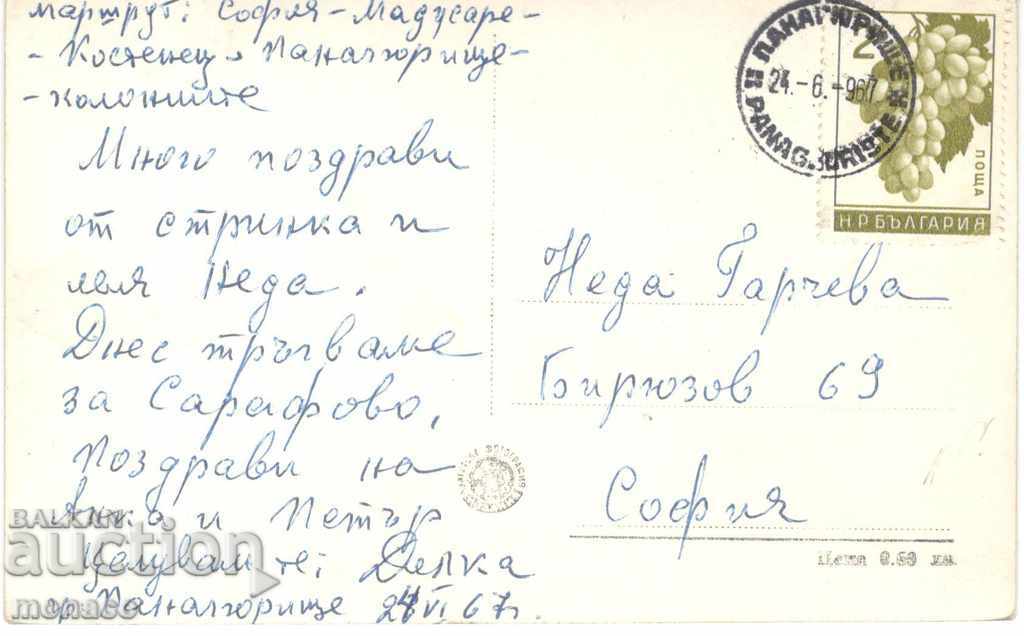 маршрут: София-Мадусаре-
-Костенец-Панагюрище-
-колониите
Много поздрави
от стринка и
леля Неда.
Днес тръгваме
за Сарафово.
Поздрави на
Анка и Петър
Целувам те: Делка
гр. Панагюрище 24 VI 67г.
ПАНАГЮРИЩЕ
24.-6.-967
PANAGJURIŠTE
2
ПОЩА
НР БЪЛГАРИЯ
Неда Гарчева
Бирюзов 69
София
Цена 0.60 лв.
BALKAN
auction
monass